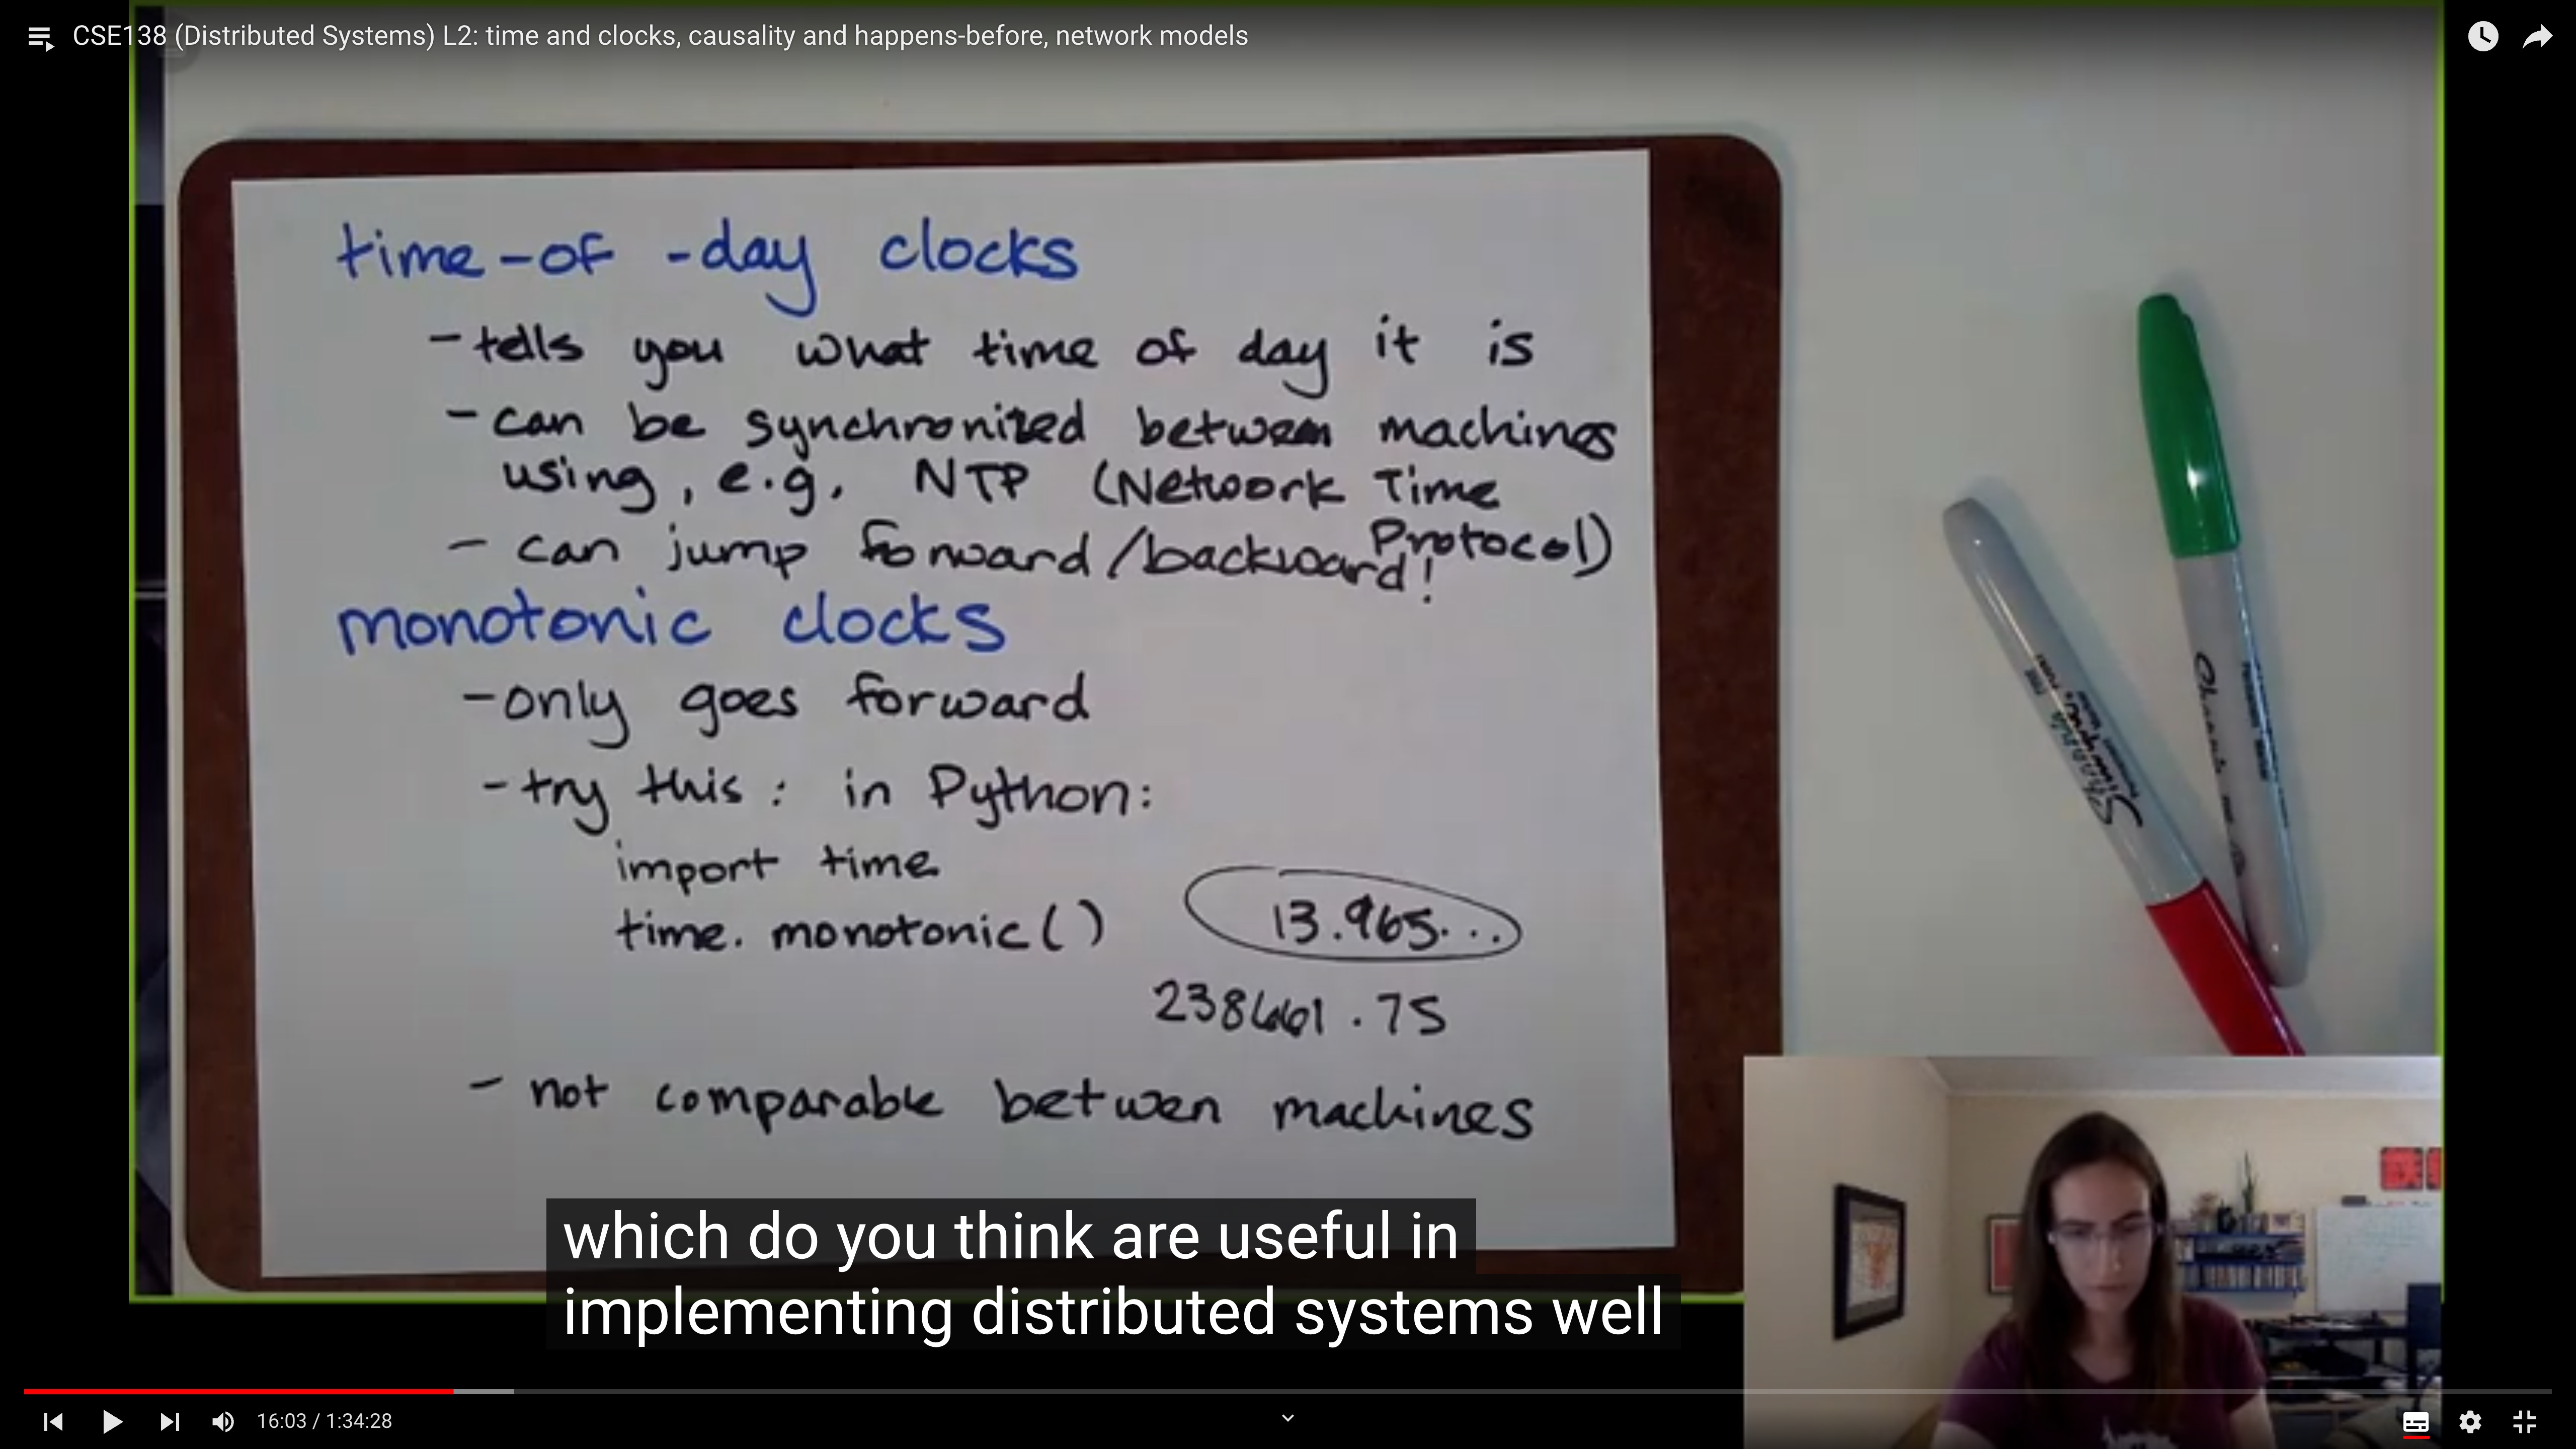 CSE138 (Distributed Systems) L2: time and clocks, causality and happens-before, network models
time-of-day clocks
- tells you what time of day it is
- can be synchronized between machines
using, e.g. NTP (Network Time
Protocol)
- can jump forward/backward!
monotonic clocks
- only goes forward
- try this: in Python:
import time
time.monotonic()
13.965...
238661.75
- not comparable between machines
which do you think are useful in
implementing distributed systems well
16:03 / 1:34:28